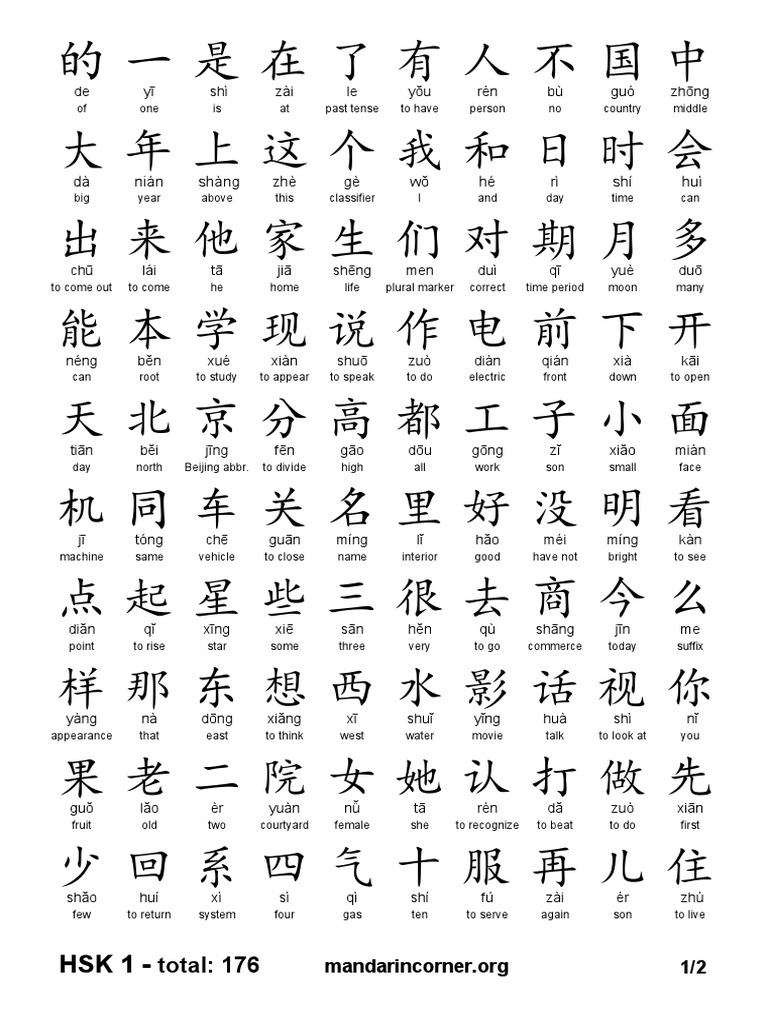 的 一 是 在 了 有 人 不 国 中
de yī shì zài le yǒu rén bù guó zhōng
of one is at past tense to have person no country middle
大 年 上 这 个 我 和 日 时 会
dà nián shàng zhè gè wǒ hé rì shí huì
big year above this classifier I and day time can
出 来 他 家 生 们 对 期 月 多
chū lái tā jiā shēng men duì qī yuè duō
to come out to come he home life plural marker correct time period moon many
能 本 学 现 说 作 电 前 下 开
néng běn xué xiàn shuō zuò diàn qián xià kāi
can root to study to appear to speak to do electric front down to open
天 北 京 分 高 都 工 子 小 面
tiān běi jīng fēn gāo dōu gōng zǐ xiǎo miàn
day north Beijing abbr. to divide high all work son small face
机 同 车 关 名 里 好 没 明 看
jī tóng chē guān míng lǐ hǎo méi míng kàn
machine same vehicle to close name interior good have not bright to see
点 起 星 些 三 很 去 商 今 么
diǎn qǐ xīng xiē sān hěn qù shāng jīn me
point to rise star some three very to go commerce today suffix
样 那 东 想 西 水 影 话 视 你
yàng nà dōng xiǎng xī shuǐ yǐng huà shì nǐ
appearance that east to think west water movie talk to look at you
果 老 二 院 女 她 认 打 做 先
guǒ lǎo èr yuàn nǚ tā rèn dǎ zuò xiān
fruit old two courtyard female she to recognize to beat to do first
少 回 系 四 气 十 服 再 儿 住
shǎo huí xì sì qì shí fú zài ér zhù
few to return system four gas ten to serve again son to live
HSK 1 - total: 176 mandarincorner.org 1/2